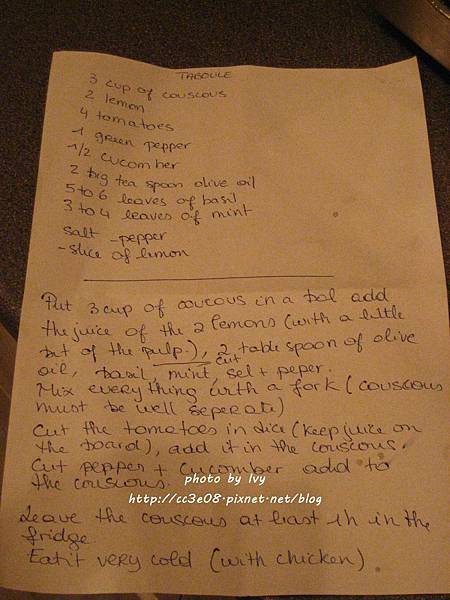 TABOULE
3 cup of couscous
2 lemon
4 tomatoes
1 green pepper
1/2 cucomber
2 big tea spoon olive oil
5 to 6 leaves of basil
3 to 4 leaves of mint
salt - pepper
- slice of lemon
Put 3 cup of coucous in a bol add
the juice of the 2 lemons (with a little
bit of the pulp.), 2 table spoon of olive
oil, basil, mint, cut sel + peper.
Mix everything with a fork (couscous
must be well seperate)
Cut the tomatoes in dice (keep juice on
the board), add it in the couscous.
Cut pepper + cucomber add to
the couscous.
photo by Ivy
http://cc3e08.pixnet.net/blog
Leave the couscous at least 1h in the
fridge
Eat it very cold (with chicken).